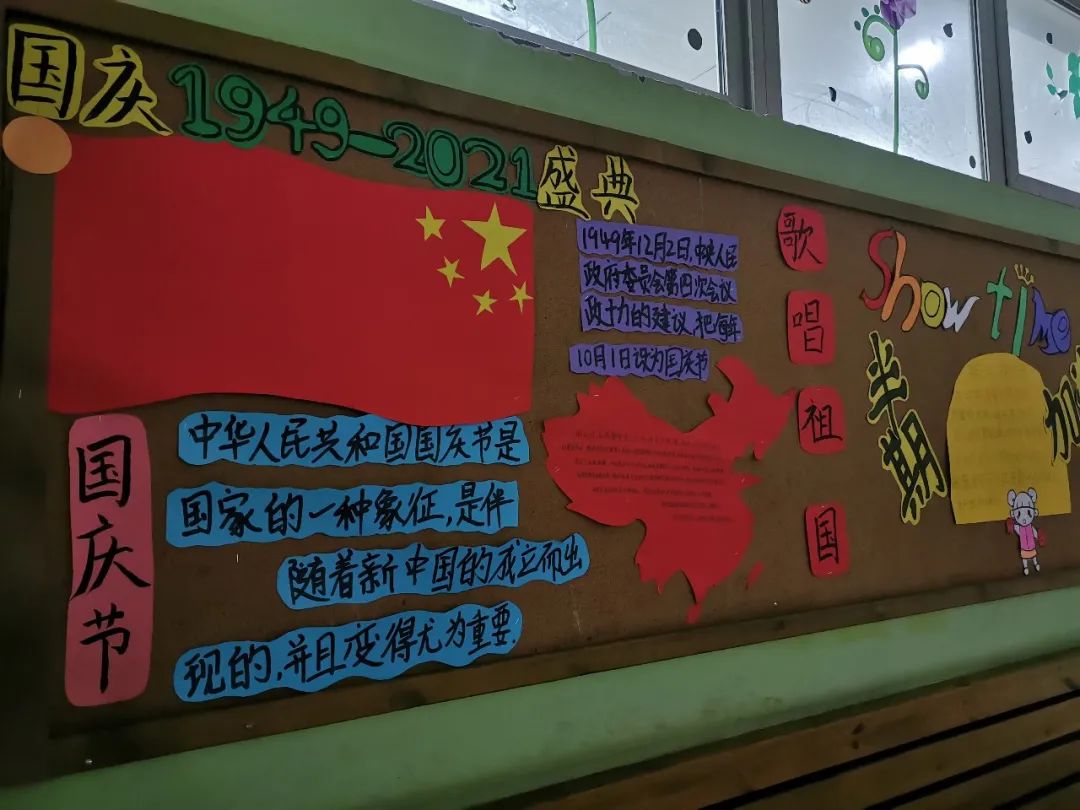 国庆1949—2021盛典
1949年12月2日,中央人民
政府委员会第四次会议
政十力的建议,把每年
10月1日设为国庆节
国庆节
中华人民共和国国庆节是
国家的一种象征,是伴
随着新中国的成立而出
现的,并且变得尤为重要.
歌唱祖国
Show time
半期
加